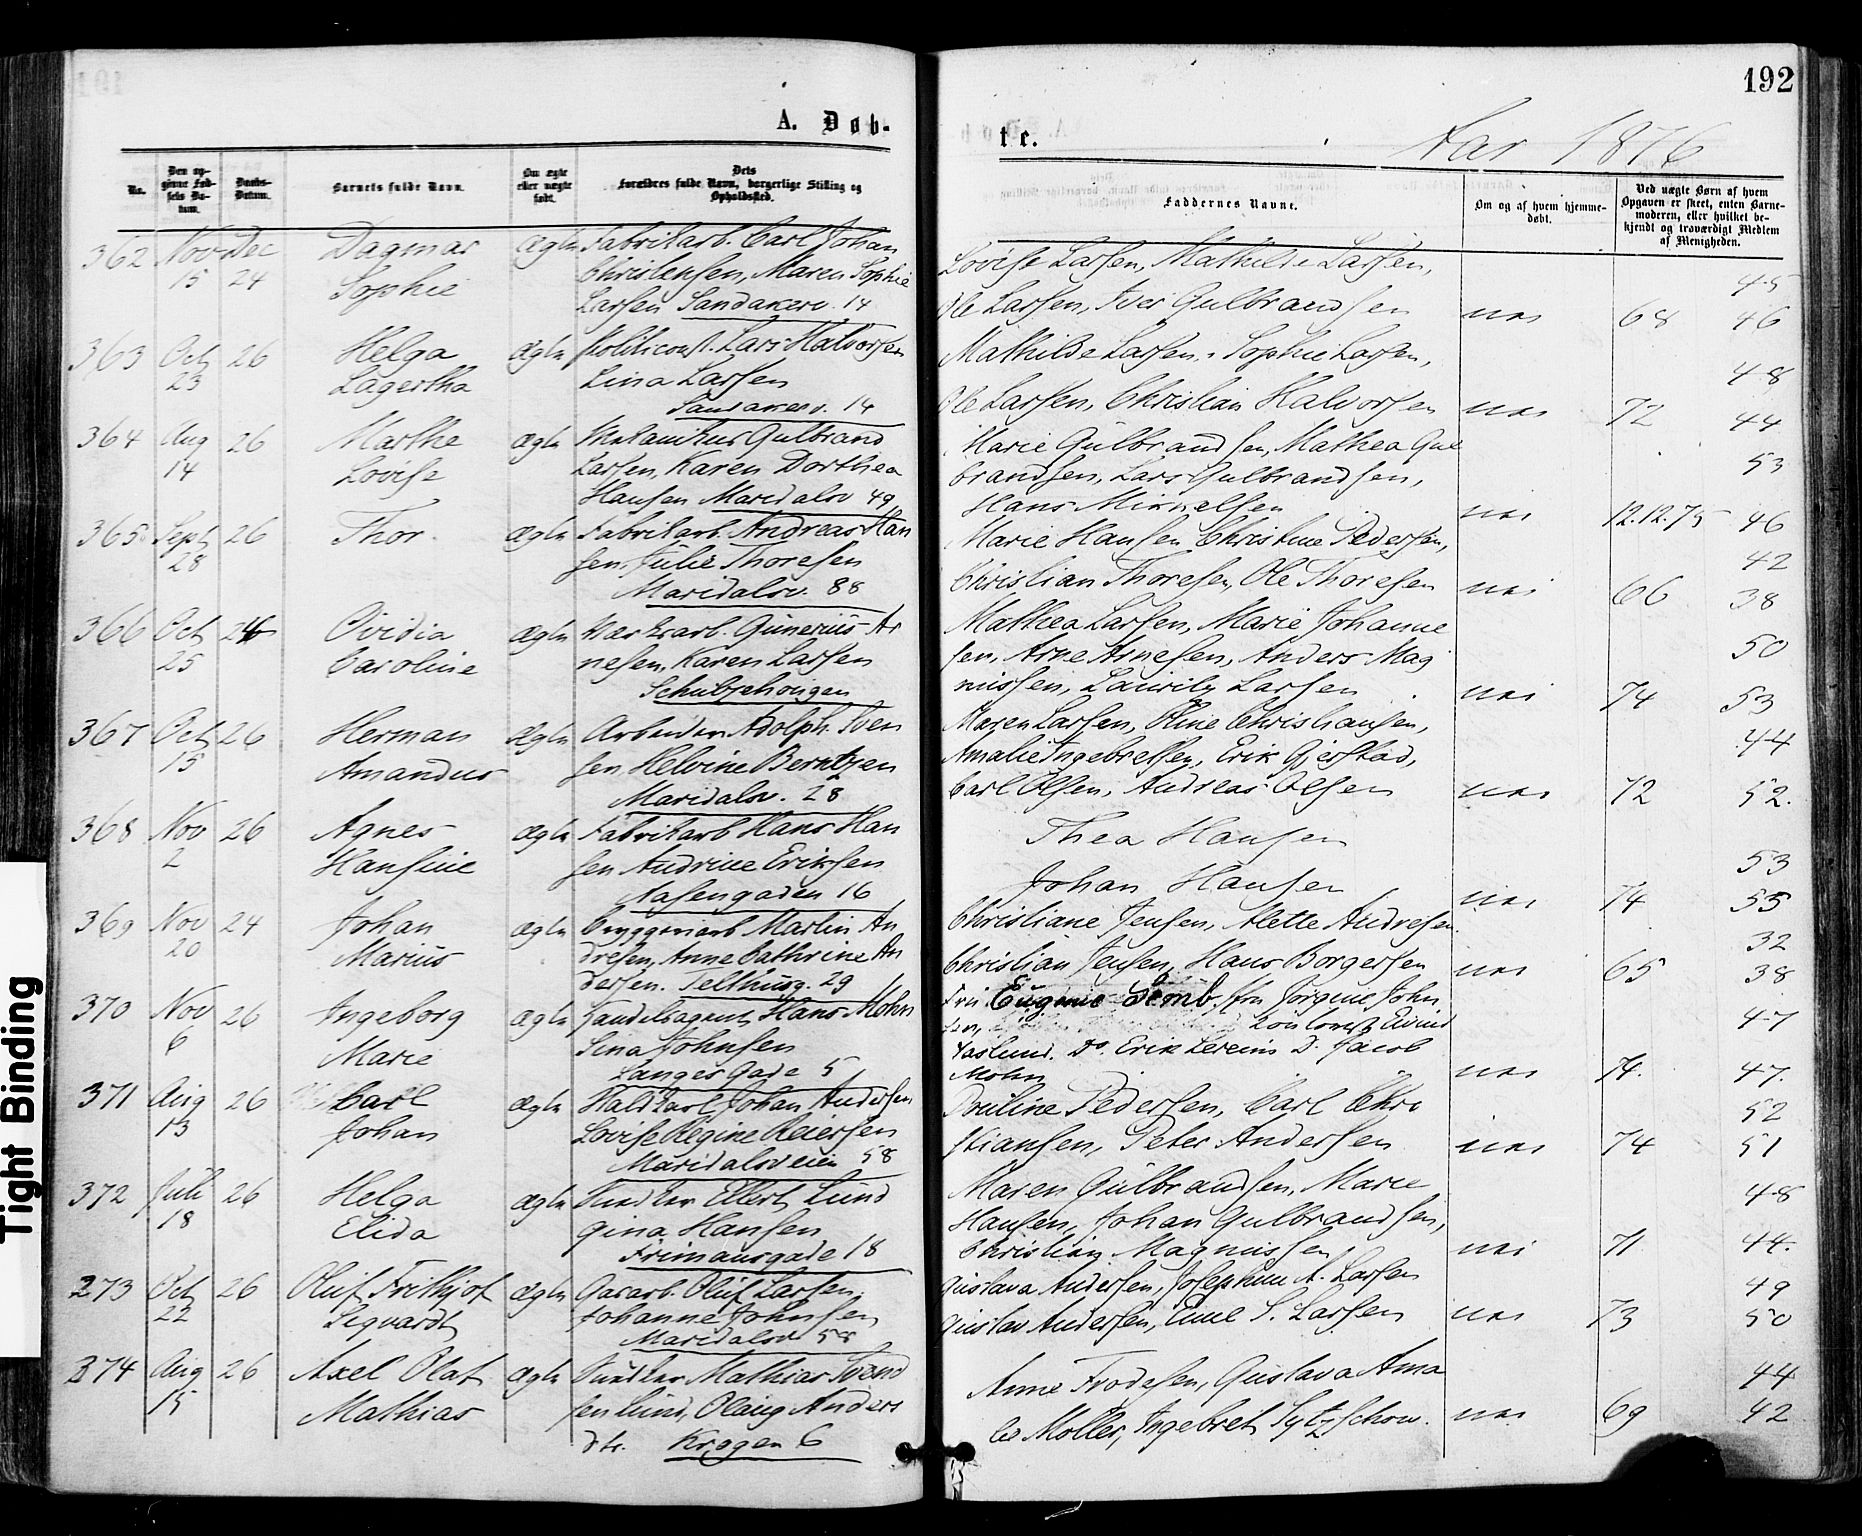 192
A. Døb-
te.
Aar 1876
No.
Den op-
givne Fød-
sels Da-
tum.
Daabs-
Datum.
Barnets fulde Navn.
Om ægte
eller uægte
født.
Dets
Forældres fulde Navn, borgerlige Stilling og
Opholdssted.
Faddernes Navne.
Om og af hvem hjemme-
døbt.
Ved uægte Børn af hvem
Opgaven er skeet, enten Barne-
moderen, eller hvilket be-
kjendt og troværdigt Medlem
af Menigheden.
362 Nov Dec Dagmar ægte Fabrikarb. Carl Johan
15 24 Sophie Christensen, Maren Sophie
Larsen Sandakerv. 14
Lovise Larsen, Mathilde Larsen, 45
Ole Larsen, Iver Gulbrandsen nei 68 46
363 Oct 26 Helga ægte Politiconst. Lars Halvorsen
23 Lagertha Lina Larsen
Sandakerv. 14
Mathilde Larsen, Sophie Larsen, 48
Ole Larsen, Christian Halvorsen nei 72 44
364 Aug 26 Marthe ægte Mekanikus Gulbrand
14 Lovise Larsen, Karen Dorthea
Hansen Maridalsv 49
Marie Gulbrandsen, Mathea Gul
brandsen, Lars Gulbrandsen, 53
Hans Mikkelsen nei 12.12.75 46
365 Sept 26 Thor. ægte Fabrikarb. Andreas Han
28 sen, Julie Thoresen
Maridalsv. 88
Marie Hansen, Christine Pedersen, 42
Christian Thoresen, Ole Thoresen nei 66 38
366 Oct 26 Ovidia ægte Værksarb. Gunerius Ar
25 Caroline nesen, Karen Larsen
Schultzehougen
Mathea Larsen, Marie Johanne
sen, Arne Arnesen, Anders Mag 50
nussen, Lauritz Larsen nei 74 53
367 Oct 26 Herman ægte Arbeider Adolph Sven
15 Amandus sen Helvine Berntzen
Maridalsv. 28
Maren Larsen, Oline Christiansen, 44
Amalie Ingebretsen, Erik Gjerstad,
Carl Olsen, Andreas Olsen nei 72 52.
368 Nov 26 Agnes ægte Fabrikarb Hans Han
2 Hansine sen Andrine Eriksen
Aasengaden 16
Thea Hansen 53
Johan Hansen nei 74 55
369 Nov 24 Johan ægte Bryggeriarb Martin An
20 Marius dresen, Anne Cathrine An
dersen. Telthusg. 29
Christiane Jensen, Mette Andresen 32
Christian Jensen, Hans Borgersen nei 65 38
370 Nov 26 Ingeborg ægte Handelsagent Hans Mohn
6 Marie Sina Johnsen
Langes Gade 5
Fru Eugenie Semb, Frk Jørgine John
sen, Eivind 47
Aaslund. Do. Erik D. Jacob
Mohn nei 74. 47.
371 Aug 26 Carl ægte Johan Andersen
13 Johan Lovise Regine Reiersen
Maridalsveien 58
Pauline Pedersen, Carl Chri 52
stiansen, Peter Andersen nei 74 51
372 Juli 26 Helga ægte Snedker Ellert Lund
18 Elida gina Hansen
Frimansgade 18
Maren Gulbrandsen, Marie 48
Hansen, Johan Gulbrandsen,
Christian Magnussen nei 71 44.
273 Oct 26 Oluf Frithjof ægte Gararb. Oluf Larsen,
22 Sigvardt Johanne Johnsen
Maridalsv 58
Gustava Andersen, Josephine A. Larsen 49
Gustav Andersen, Emil S. Larsen nei 73 50
374 Aug 26 Axel Olaf ægte Snedker Mathias Svend
15 Mathias sen Lund, Olaug Anders
dtr. Krogen 6
Anne Frodesen, Gustava Ama 44
lie Møller, Ingebret nei 69 42
Tight Binding